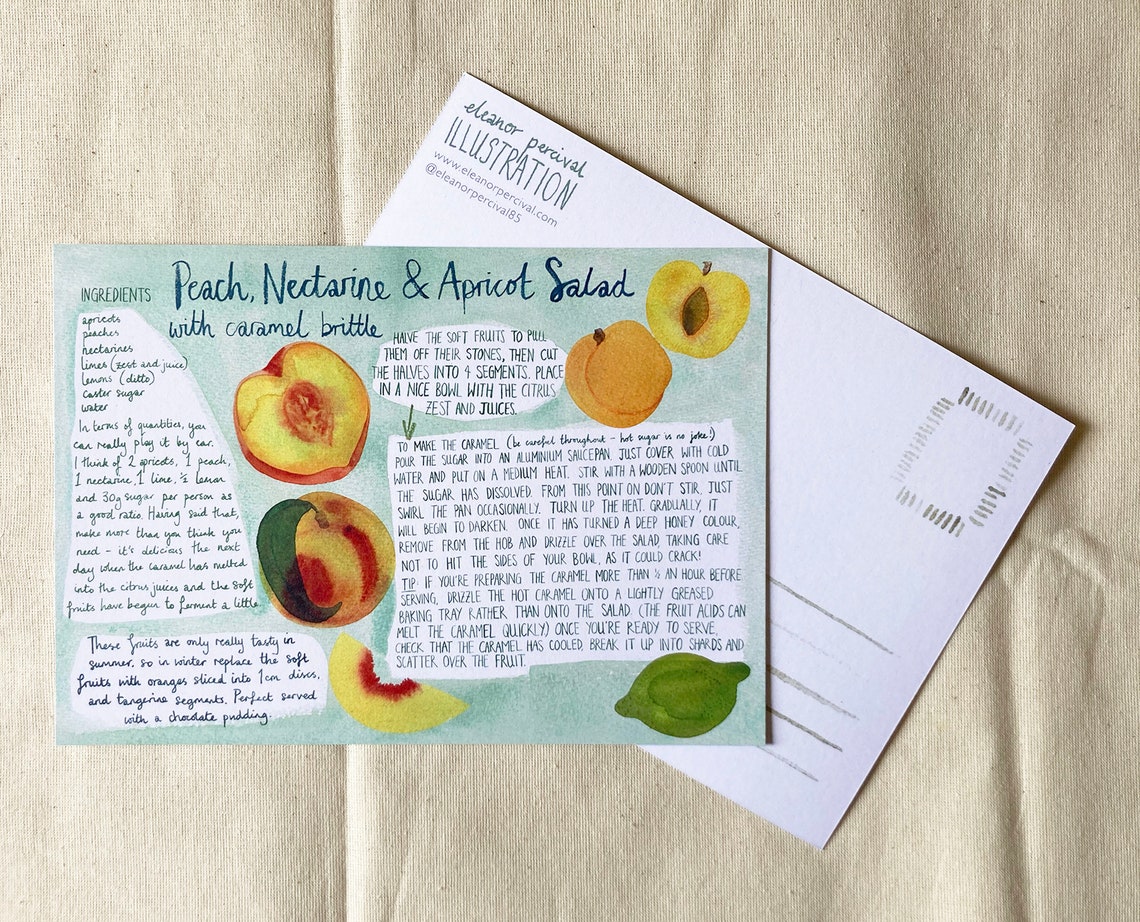 eleanor percival
ILLUSTRATION
www.eleanorpercival.com
@eleanorpercival85
Peach, Nectarine & Apricot Salad
with caramel brittle
INGREDIENTS
apricots
peaches
nectarines
limes (zest and juice)
lemons (ditto)
caster sugar
water
In terms of quantities, you
can really play it by ear.
I think of 2 apricots, 1 peach,
1 nectarine, 1 lime, ½ lemon
and 30g sugar per person as
a good ratio. Having said that,
make more than you think you
need - it's delicious the next
day when the caramel has melted
into the citrus juices and the soft
fruits have begun to ferment a little.
These fruits are only really tasty in
summer, so in winter replace the soft
fruits with oranges sliced into 1cm discs,
and tangerine segments. Perfect served
with a chocolate pudding.
HALVE THE SOFT FRUITS TO PULL
THEM OFF THEIR STONES, THEN CUT
THE HALVES INTO 4 SEGMENTS. PLACE
IN A NICE BOWL WITH THE CITRUS
ZEST AND JUICES.
TO MAKE THE CARAMEL (be careful throughout - hot sugar is no joke!)
POUR THE SUGAR INTO AN ALUMINIUM SAUCEPAN. JUST COVER WITH COLD
WATER AND PUT ON A MEDIUM HEAT. STIR WITH A WOODEN SPOON UNTIL
THE SUGAR HAS DISSOLVED. FROM THIS POINT ON DON'T STIR, JUST
SWIRL THE PAN OCCASIONALLY. TURN UP THE HEAT. GRADUALLY, IT
WILL BEGIN TO DARKEN. ONCE IT HAS TURNED A DEEP HONEY COLOUR,
REMOVE FROM THE HOB AND DRIZZLE OVER THE SALAD, TAKING CARE
NOT TO HIT THE SIDES OF YOUR BOWL, AS IT COULD CRACK!
TIP: IF YOU'RE PREPARING THE CARAMEL MORE THAN ½ AN HOUR BEFORE
SERVING, DRIZZLE THE HOT CARAMEL ONTO A LIGHTLY GREASED
BAKING TRAY RATHER THAN ONTO THE SALAD. (THE FRUIT ACIDS CAN
MELT THE CARAMEL QUICKLY) ONCE YOU'RE READY TO SERVE,
CHECK THAT THE CARAMEL HAS COOLED, BREAK IT UP INTO SHARDS AND
SCATTER OVER THE FRUIT.